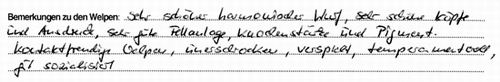 Bemerkungen zu den Welpen: Sehr schöner harmonischer Wurf, sehr schöne Köpfe
und Ausdruck, sehr gute Fellanlage, Knochenstärke und Pigment.
Kontaktfreudige Welpen, unerschrocken, verspielt, temperamentvoll,
gut sozialisiert